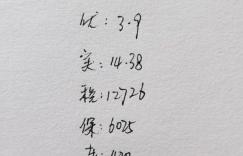 优：3.9
实：14.38
税：12726
保：6025